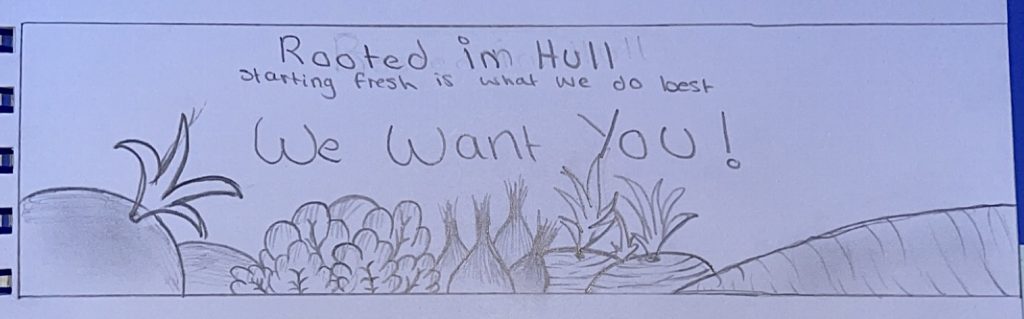 Rooted in Hull
starting fresh is what we do best
We Want You!